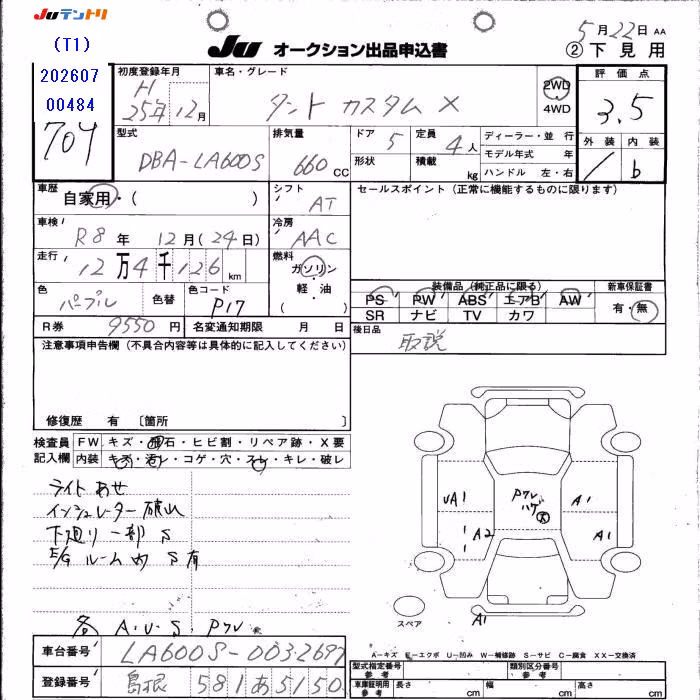 JUテントリ
(T1)
202607
00484
704
JU オークション出品申込書
5月22日 AA
② 下見用
初度登録年月
H
25年12月
車名・グレード
タント カスタム X
2WD
4WD
評価点
3.5
外装 内装
b
型式
DBA-LA600S
排気量
660 CC
ドア 5
形状
定員 4人
積載 kg
ディーラー・並 行
モデル年式 年
ハンドル 左・右
車歴
自家用・( )
シフト
AT
セールスポイント (正常に機能するものに限ります)
車検
R8年 12月(24日)
冷房
AAC
走行
12万4千126 km
燃料
ガソリン
・軽・油
( )
色
パープル
色替
色コード
P17
装備品(純正品に限る)
PS PW ABS エアB AW
SR ナビ TV カワ
新車保証書
有・無
R券 9550円
名変通知期限 月 日
後日品
取説
注意事項申告欄 (不具合内容等は具体的に記入してください)
修復歴 有 [箇所 ]
検査員
記入欄
FW キズ・飛石・ヒビ割・リペア跡・X要
内装 キズ・汚レ・コゲ・穴・スレ・キレ・破レ
ライトあせ
インシュレーター破レ
下廻り一部 S
E/G ルーム内 S 有
各 A.U.S. Pフレ
A1
A2
A1
A1
A1
スペア
A-キズ E-エクボ U-凹み W-補修跡 S-サビ C-腐食 XX-交換済
車台番号
LA600S-0032697
登録番号
島根 581あ5150
型式指定番号
参考
類別区分番号
参考
車庫証明用
参考
長さ cm 幅 cm 高さ cm